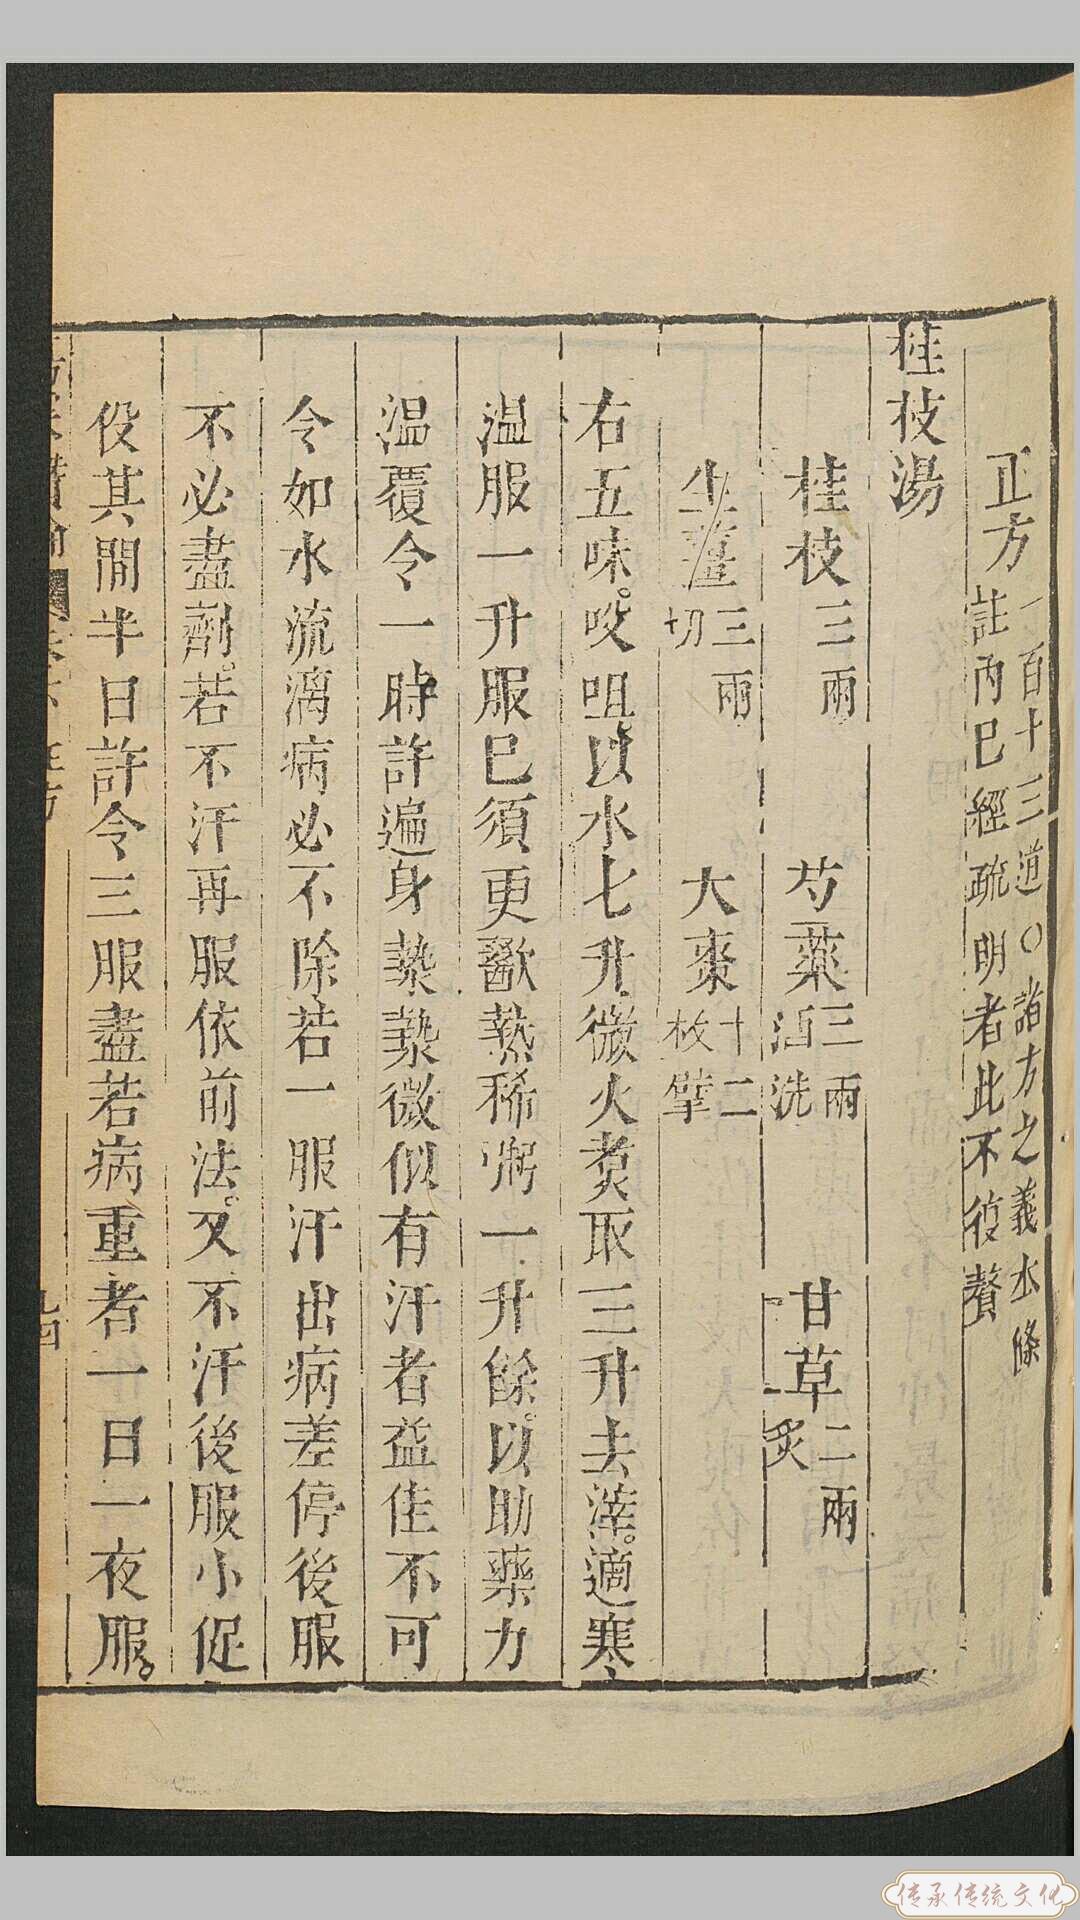 正方一百十三道〇諸方之義本條註內已經疏明者此不復贅
桂枝湯
桂枝三兩 芍藥三兩酒洗 甘草二兩炙
生薑三兩切 大棗十二枚擘
右五味。㕮咀。以水七升。微火煑取三升去滓。適寒
温服一升服已須更歠熱稀粥一升餘。以助藥力
温覆令一時許遍身漐漐微似有汗者益佳不可
令如水流漓病必不除若一服汗出病差停後服
不必盡劑。若不汗再服依前法。又不汗後服小促
役其間半日許令三服盡若病重者一日一夜服。
傳承傳統文化